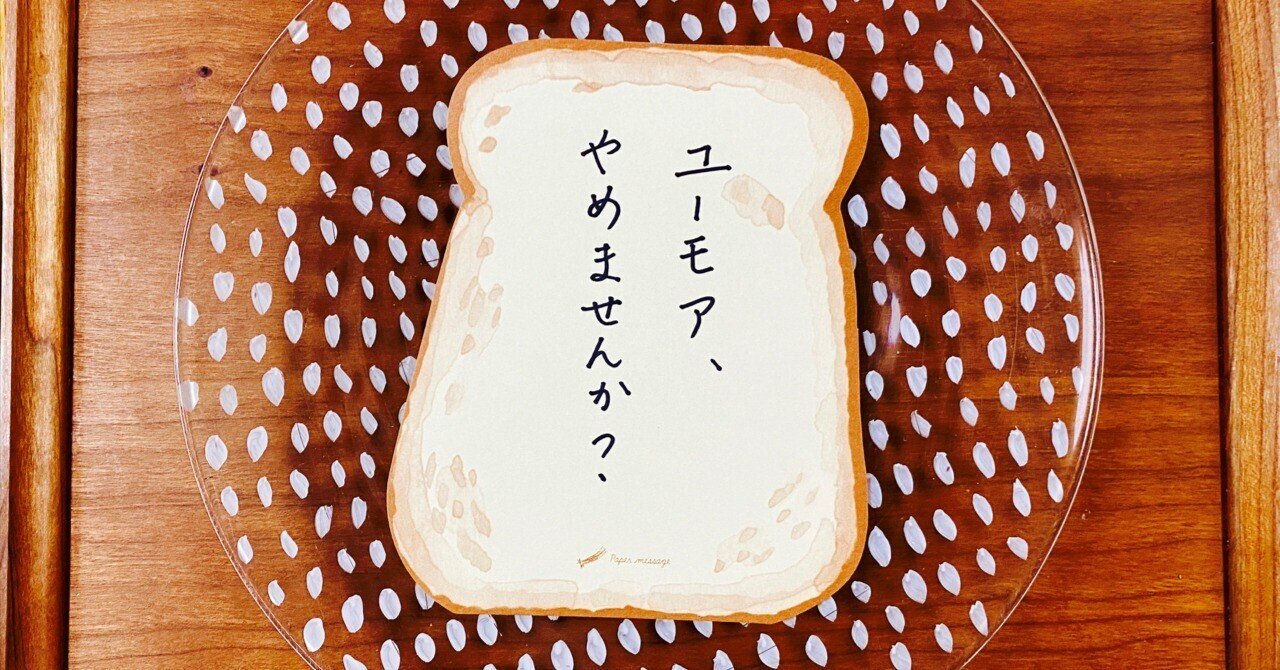 ユーモア、
やめませんか?
Paper message